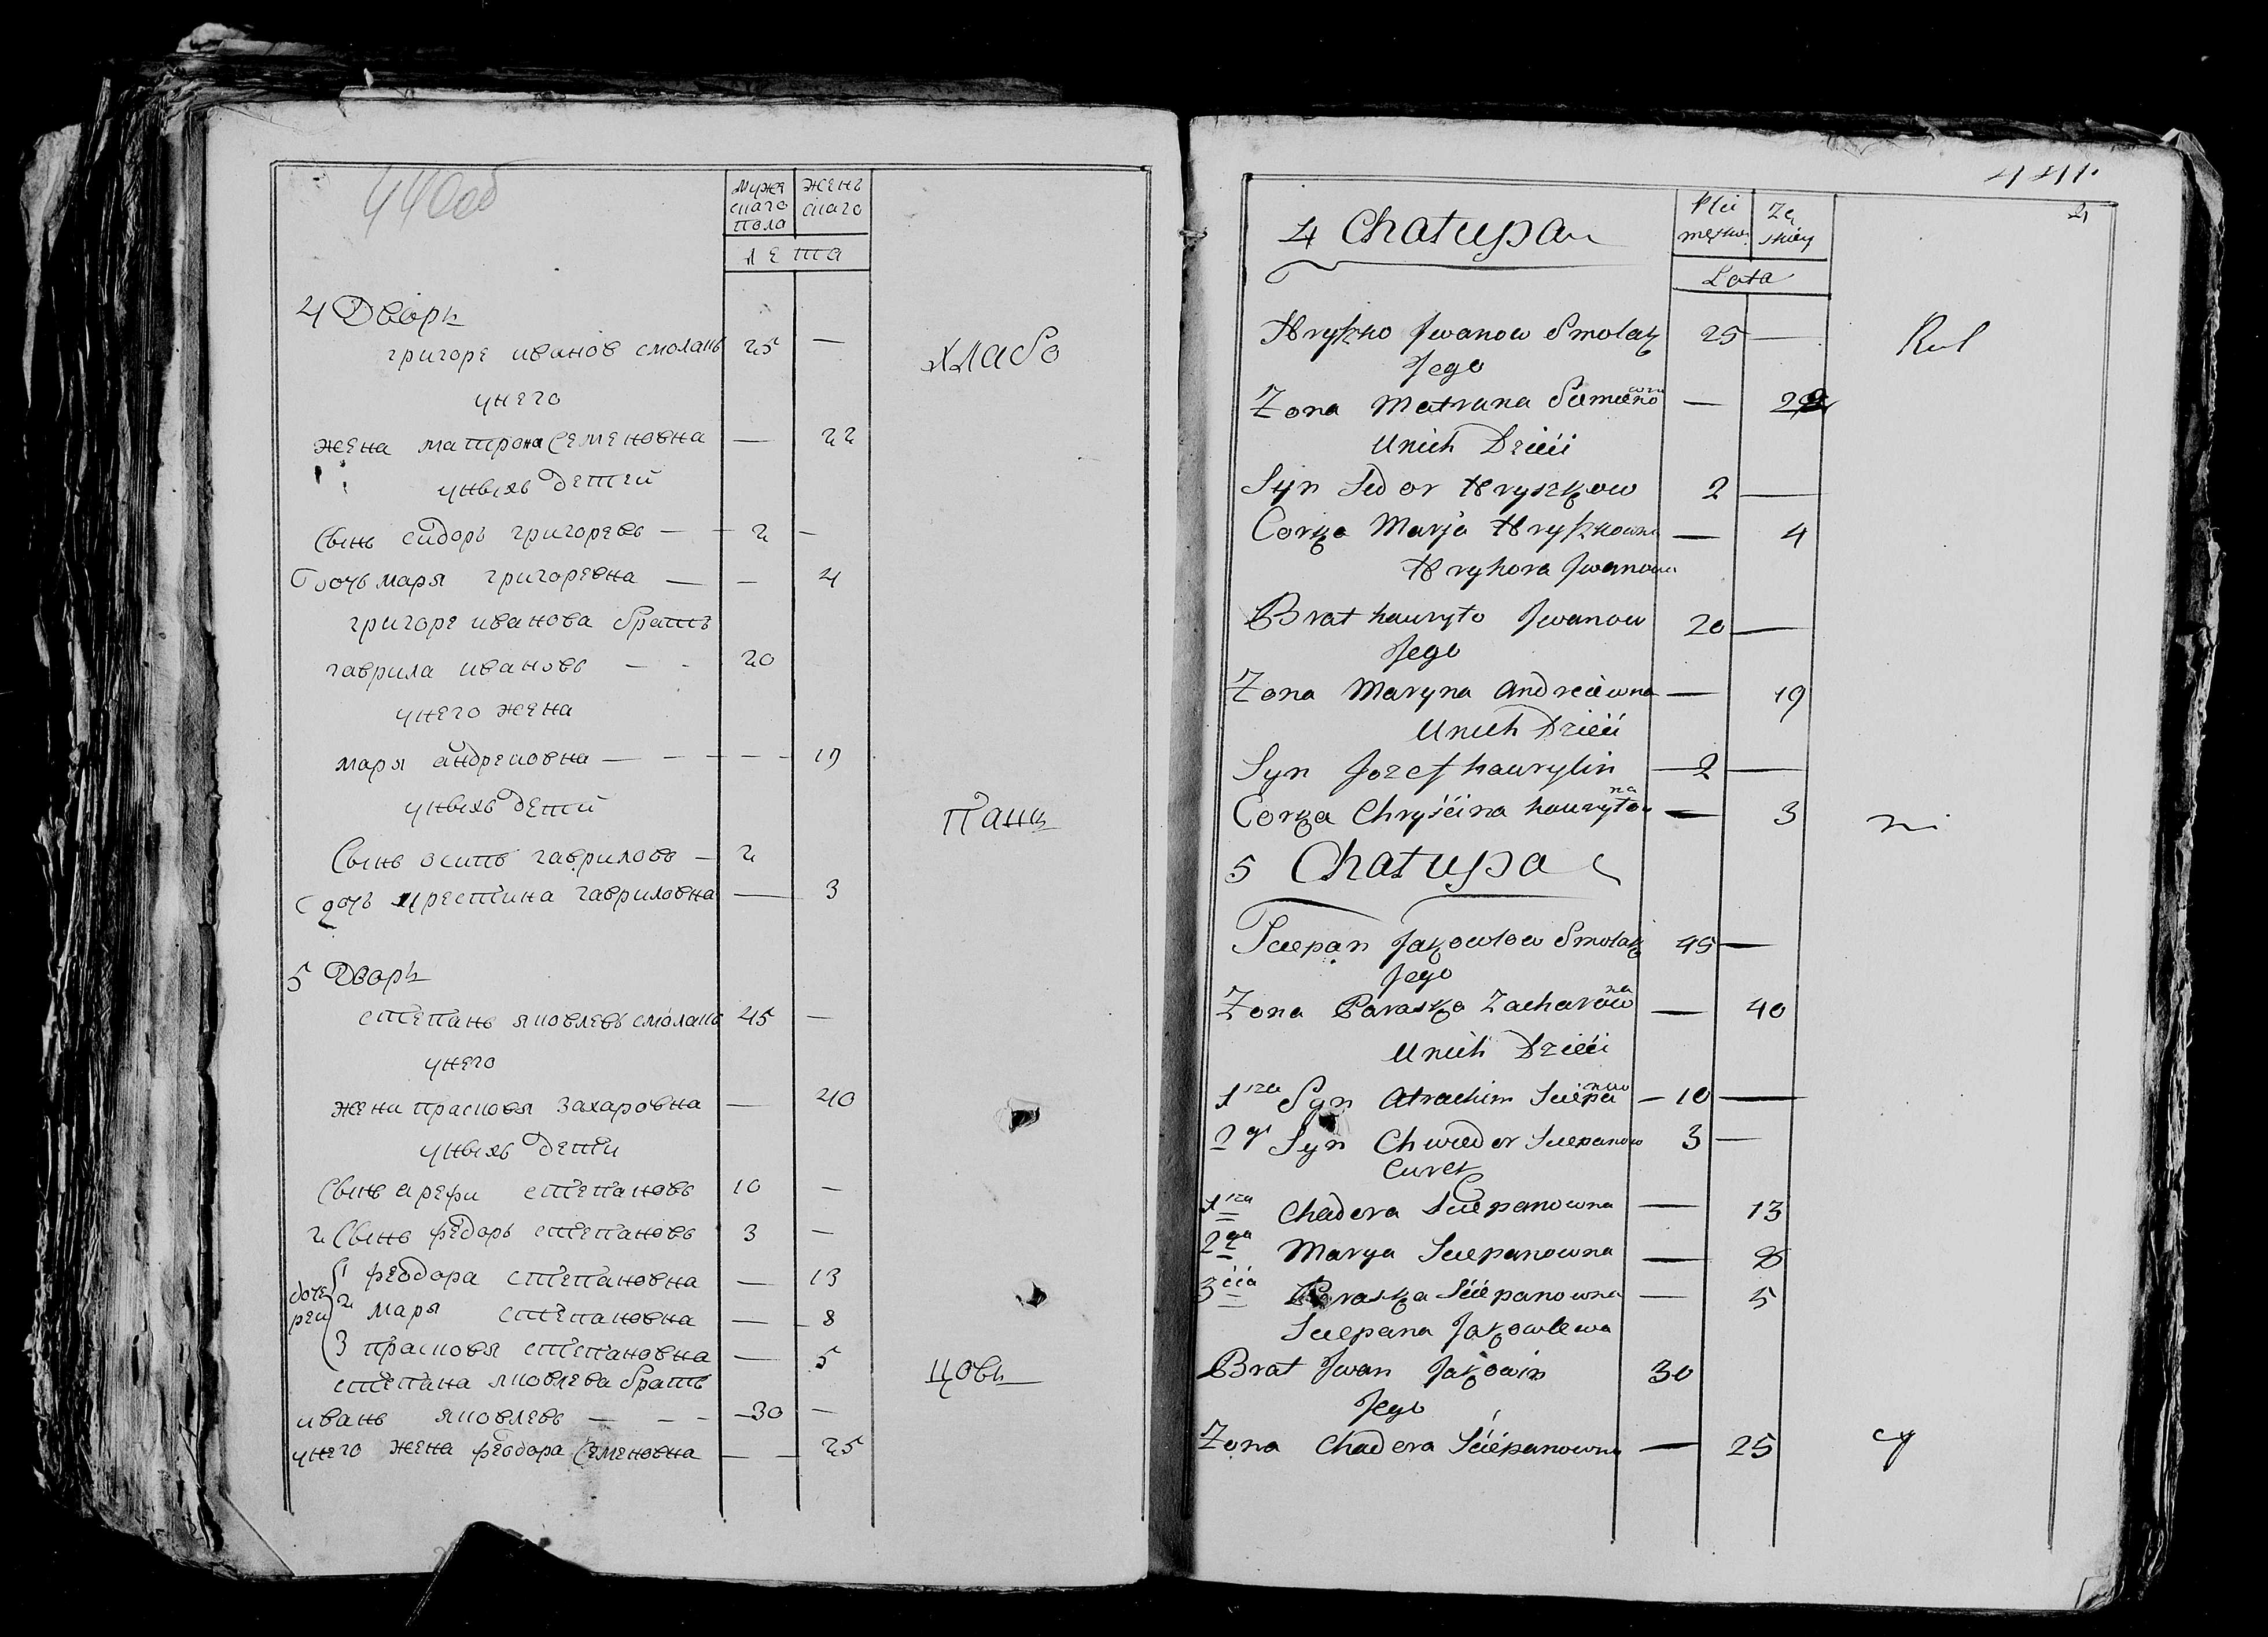 440об
муже
скаго
пола
женъ
скаго
лета
4 Дворъ
григоре иванов смолакъ 25 —
унего
жена матрона Семеновна — 22
уныхъ детей
Сынъ сидоръ григоревъ — 2 —
дочъ маря григоревна — — 4
григоре иванова братъ
гаврила ивановъ — - 20
унего жена
маря андреиовна — — — — 19
уныхъ дети
Сынъ осипъ гавриловъ — 2
дочъ крестина гавриловна — 3
5 Дворъ
степанъ яковлевъ смолакъ 45 —
унего
жена прасковя захаровна — 40
уныхъ дети
Сынъ арефи степановъ 10 —
2 Сынъ федоръ степановъ 3 —
доче
реи
1 феодора степановна — 13
2 маря степановна — 8
3 прасковя степановна — 5
степана яковлева братъ
иванъ яковлевъ — — - 30 —
унего жена феодора Семеновна — — 25
хлабо
Панц
цовъ
441.
4 Chałupa
Płci
męskie.
Lata
Hryszko Jwanow Smolak 25 —
Jego
Zona Matruna Siemieno wna —
Unich Dzieci
Syn Sedor Hryszkow 2 —
Corka Marja Hryszkowna — 4
Hryhora Jwanowa
Brat hauryło Jwanow 20 —
Jego
Zona Maryna Andreiewna — 19
Unich Dzieci
Syn Jozef haurylin — 2 —
Corka Chryścina hauryłow na — 3
5 Chałupa
Sciepan Jakowlow Smolak 45 —
Jego
Zona Paraska Zacharow na — 40
Unich Dzieci
1 Syn Atrachim Sciepa now — 10 —
2gi Syn Chwiedor Sciepanow 3 —
Curek
1 Chadora Sciepanowna — 13
2 Marya Sciepanowna — 8
3cia Paraska Sciepanowna — 5
Sciepana Jakowlewa
Brat Jwan Jakowin 30
Jego
Zona Chadora Sciepanowna — 25
Rol
ni
cy